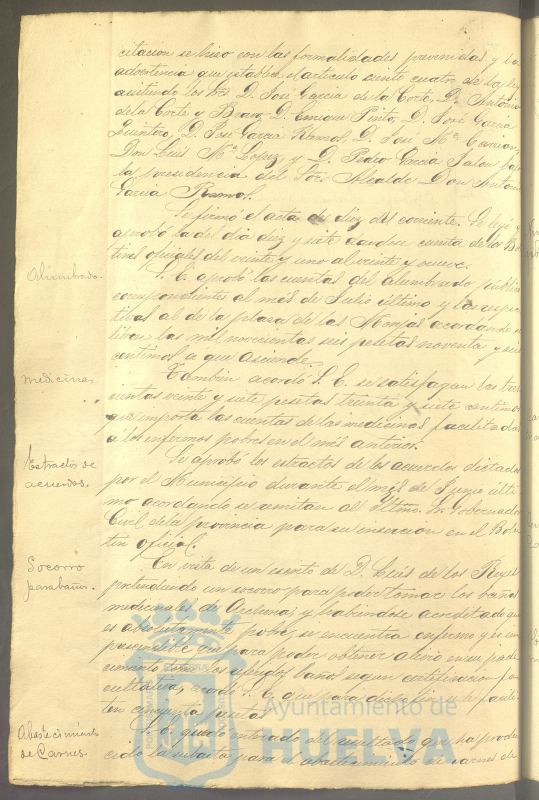 citacion se hizo con las formalidades prevenidas y la
advertencia que establece el articulo ciento cuatro de la ley
asistiendo los Sres. D. José Garcia de la Corte, D. Antonio
de la Corte y Bravo, D. Enrique Pinto, D. José Garcia
Quintero, D. José Garcia Ramos, D. José Mª Carrion,
Don Luis Mª Lopez, y D. Pedro Garcia Jalon bajo
la presidencia del Sor. Alcalde Don Antonio
Garcia Ramos.
Se firmó el acta de diez del corriente. Se leyó y
aprobó la del dia diez y siete dandose cuenta de los Bo-
tines oficiales del veinte y uno al veinte y nueve.
Alumbrado.
S. E. aprobó las cuentas del alumbrado publico
correspondientes al mes de Julio último y las respec-
tivas al de la plaza de las Monjas acordando se
libren las mil novecientas seis pesetas noventa y seis
centimos a que asciende.
Medicinas
Tambien acordó S. E. se satisfagan las tres
cientas veinte y siete pesetas treinta y siete centimos
que importa las cuentas de las medicinas facilitadas
a los enfermos pobres en el mes anterior.
Extractos de
acuerdos.
Se aprobó los extractos de los acuerdos dictados
por el Municipio durante el mes de Junio últi-
mo acordando se remitan al Iltmo. Sr. Gobernador
Civil de la provincia para su insercion en el Bole-
tin oficial.
Socorro
para baños.
En vista de un escrito de D. Luis de los Reyes
pretendiendo un socorro para poder tomar los baños
medicinales de Archena, y habiendose acreditado que
es absolutamente pobre, se encuentra enfermo y es im-
prescindible que para poder obtener alivio en su pade-
cimiento tome los aludidos baños segun certificacion fa-
cultativa, acordó S. E. que para dicho fin se le facili-
ten cincuenta pesetas
Abastecimiento
de Carnes.
S. E. quedó enterado del resultado que ha produ-
cido la subasta para el abastecimiento de carnes de
Ayuntamiento de
HUELVA